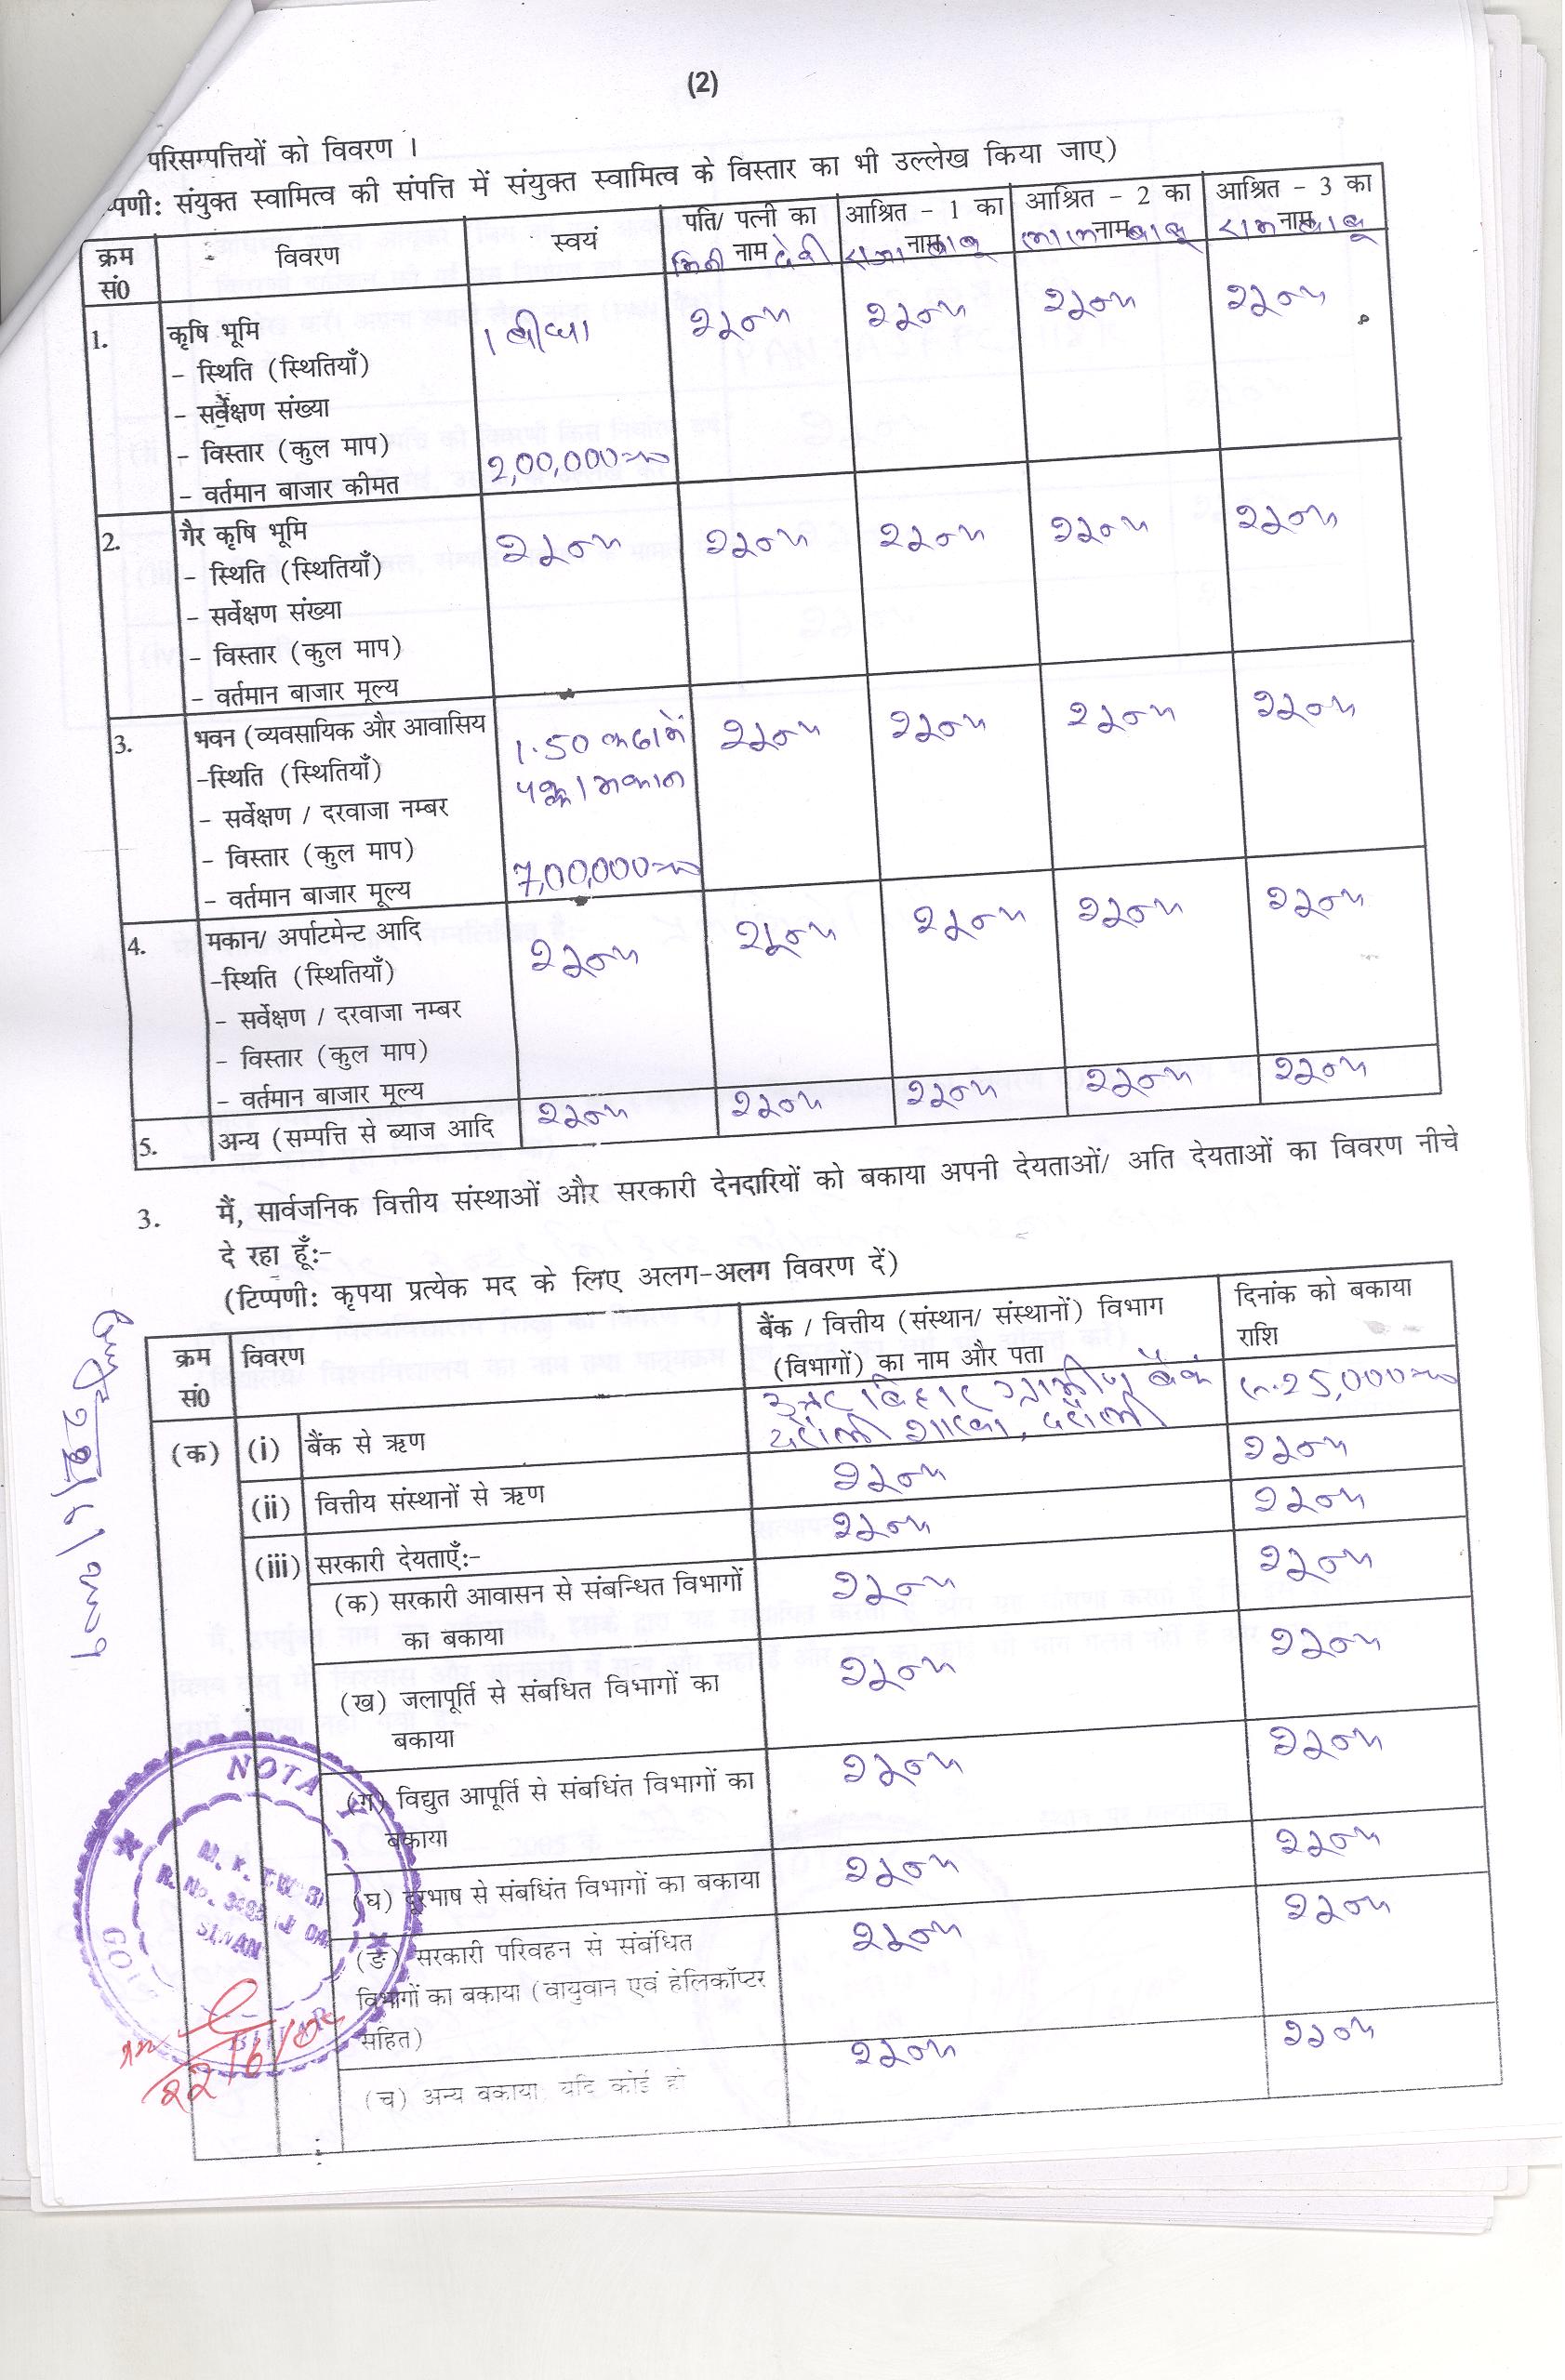 (2)
परिसम्पत्तियों को विवरण ।
प्पणी: संयुक्त स्वामित्व की संपत्ति में संयुक्त स्वामित्व के विस्तार का भी उल्लेख किया जाए)
क्रम सं0 विवरण स्वयं पति/ पत्नी का नाम आश्रित - 1 का नाम आश्रित - 2 का नाम आश्रित - 3 का नाम
देवी राजा बाबू लाल बाबू राम बाबू
1. कृषि भूमि 1 बीघा शून्य शून्य शून्य शून्य
- स्थिति (स्थितियाँ)
- सर्वेक्षण संख्या
- विस्तार (कुल माप)
- वर्तमान बाजार कीमत 2,00,000=00
2. गैर कृषि भूमि शून्य शून्य शून्य शून्य शून्य
- स्थिति (स्थितियाँ)
- सर्वेक्षण संख्या
- विस्तार (कुल माप)
- वर्तमान बाजार मूल्य
3. भवन (व्यवसायिक और आवासिय 1.50 कठा में शून्य शून्य शून्य शून्य
-स्थिति (स्थितियाँ) पक्का मकान
- सर्वेक्षण / दरवाजा नम्बर
- विस्तार (कुल माप)
- वर्तमान बाजार मूल्य 7,00,000=00
4. मकान/ अर्पाटमेन्ट आदि शून्य शून्य शून्य शून्य शून्य
-स्थिति (स्थितियाँ)
- सर्वेक्षण / दरवाजा नम्बर
- विस्तार (कुल माप)
- वर्तमान बाजार मूल्य
5. अन्य (सम्पत्ति से ब्याज आदि शून्य शून्य शून्य शून्य शून्य
3. मैं, सार्वजनिक वित्तीय संस्थाओं और सरकारी देनदारियों को बकाया अपनी देयताओं/ अति देयताओं का विवरण नीचे
दे रहा हूँ:-
(टिप्पणी: कृपया प्रत्येक मद के लिए अलग-अलग विवरण दें)
क्रम सं0 विवरण बैंक / वित्तीय (संस्थान/ संस्थानों) विभाग (विभागों) का नाम और पता दिनांक को बकाया राशि
उत्तर बिहार ग्रामीण बैंक रू.25,000=00
(क) (i) बैंक से ऋण दरौली शाखा, दरौली
शून्य
(ii) वित्तीय संस्थानों से ऋण शून्य शून्य
(iii) सरकारी देयताएँ:- शून्य
(क) सरकारी आवासन से संबन्धित विभागों शून्य शून्य
का बकाया
(ख) जलापूर्ति से संबधित विभागों का शून्य शून्य
बकाया
(ग) विद्युत आपूर्ति से संबधिंत विभागों का शून्य शून्य
बकाया
(घ) दूरभाष से संबधिंत विभागों का बकाया शून्य शून्य
(ङ) सरकारी परिवहन से संबंधित शून्य शून्य
विभागों का बकाया (वायुवान एवं हेलिकॉप्टर
सहित)
(च) अन्य वकाया यदि कोई हो शून्य शून्य
NOTA
M. K.
SIWAN